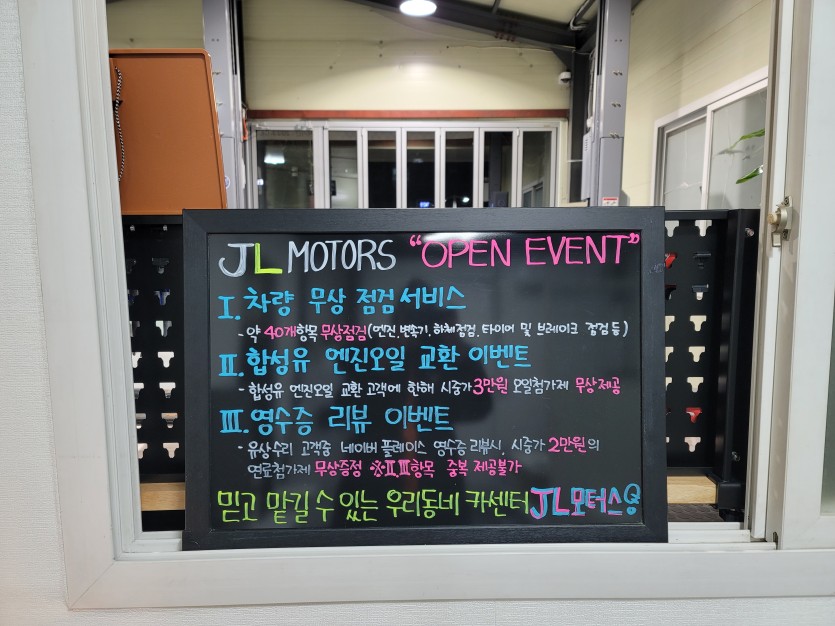 JL MOTORS "OPEN EVENT"
I. 차량 무상 점검 서비스
- 약 40개항목 무상점검(엔진,변속기,하체점검,타이어 및 브레이크 점검 등)
II. 합성유 엔진오일 교환 이벤트
- 합성유 엔진오일 교환 고객에 한해 시중가 3만원 오일첨가제 무상제공
III. 영수증 리뷰 이벤트
- 유상수리 고객중 네이버 플레이스 영수증 리뷰시, 시중가 2만원의
연료첨가제 무상증정 ※II, III항목 중복 제공불가
믿고 맡길 수 있는 우리동네 카센터 JL모터스